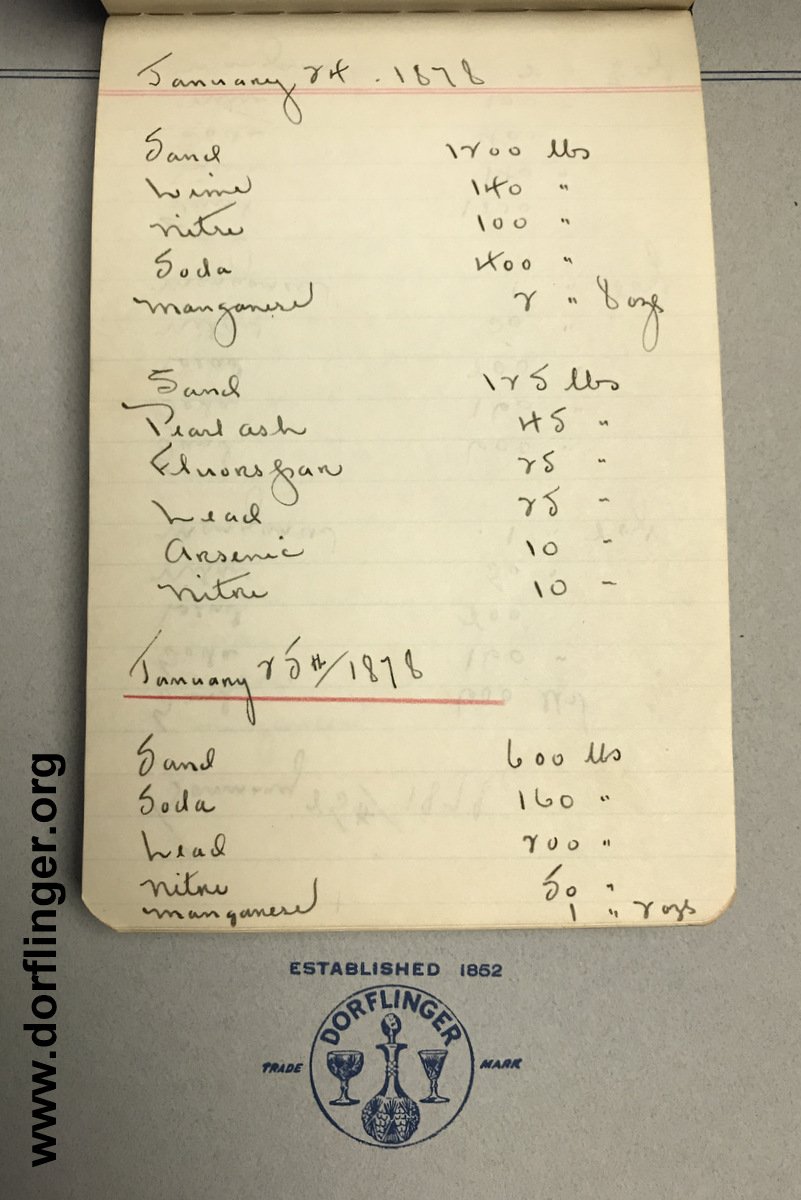 January 24 . 1878
Sand 1200 lbs
Lime 140 "
Nitre 100 "
Soda 400 "
Manganese 2 " 8 ozs
Sand 125 lbs
Pearl ash 45 "
Fluorspar 25 "
Lead 25 "
Arsenic 10 "
Nitre 10 "
January 25th/1878
Sand 600 lbs
Soda 160 "
Lead 200 "
Nitre 50 "
Manganese 1 " 2 ozs
www.dorflinger.org
ESTABLISHED 1852
DORFLINGER
TRADE MARK